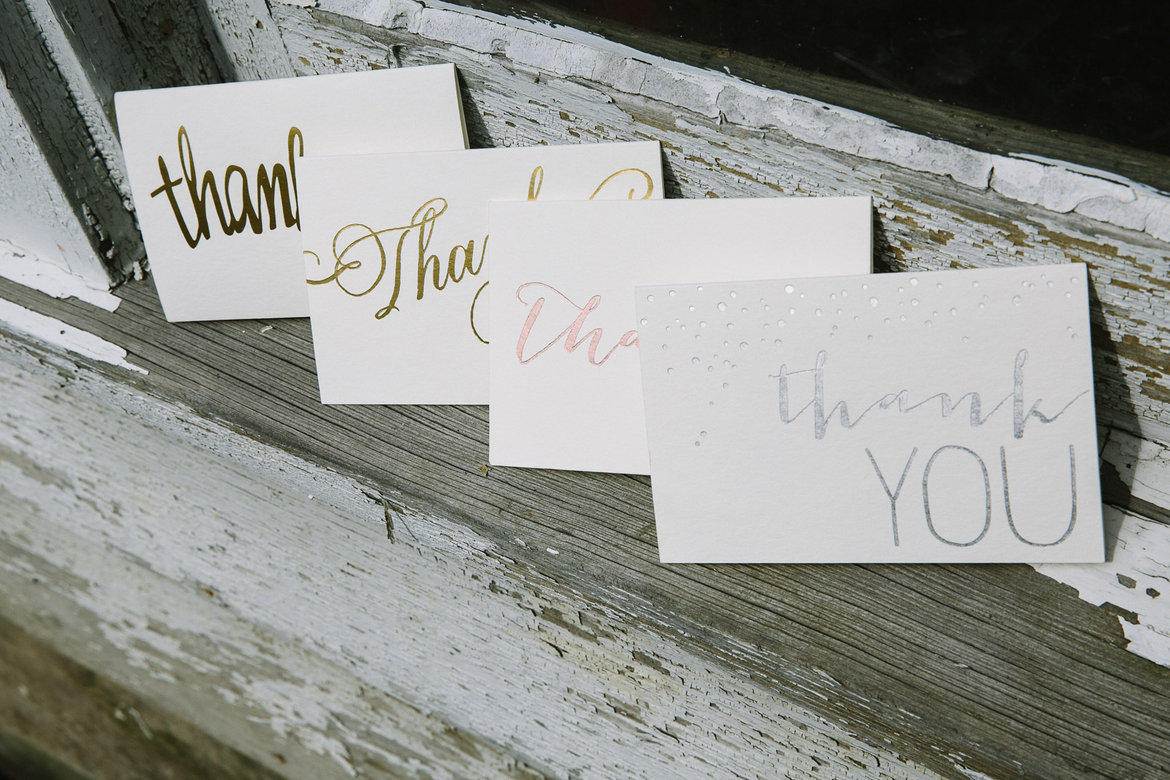 than
Tha
tha
thank
YOU